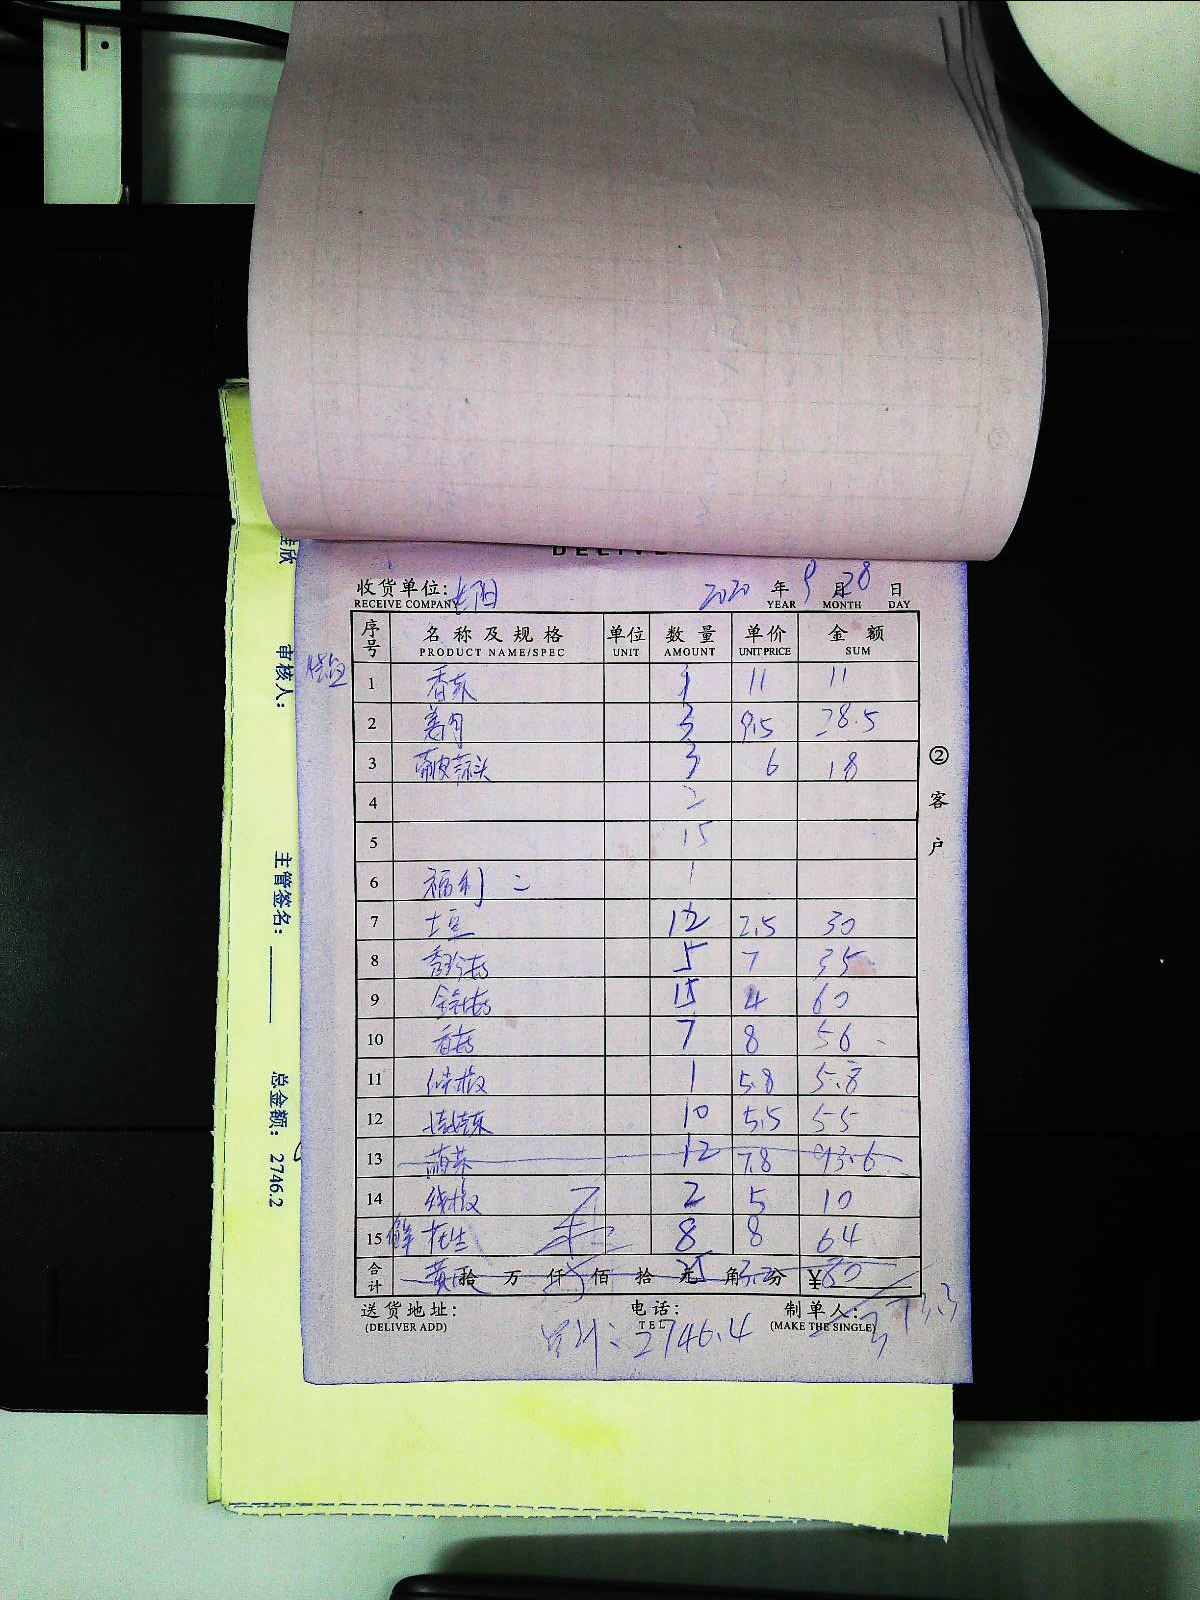 收货单位:
RECEIVE COMPANY
2020 年 9 月 28 日
YEAR MONTH DAY
序号 名称及规格 单位 数量 单价 金额
PRODUCT NAME/SPEC UNIT AMOUNT UNIT PRICE SUM
1 香菜 1 11 11
2 3 9.5 28.5
3 3 6 18
4 2
5 15
6 福利二 1
7 土豆 12 2.5 30
8 秀珍菇 5 7 35
9 金针菇 15 4 60
10 香菇 7 8 56
11 1 5.8 5.8
12 10 5.5 55
13 12 7.8 93.6
14 线椒 2 5 10
15 鲜花生 8 8 64
合计 拾 万 仟 佰 拾 元 角 分 ¥
送货地址: 电话: 制单人:
(DELIVER ADD) TEL (MAKE THE SINGLE)
2746.4
②客户
审核人:
主管签名:
总金额: 2746.2